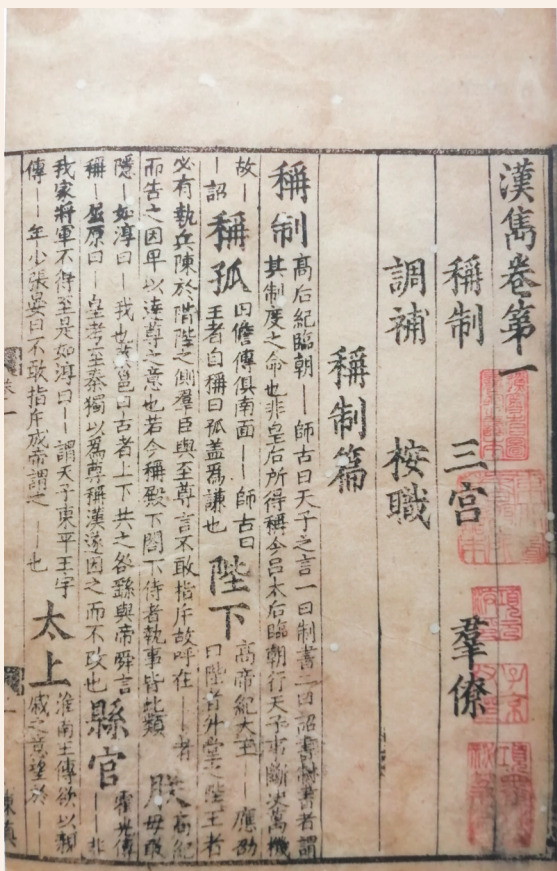 漢雋卷第一
稱制 三宮 羣僚
調補 按職
稱制篇
稱制 高后紀臨朝｜師古曰天子之言一曰制書二曰詔書制書者謂
其制度之命也非皇后所得稱今呂太后臨朝行天子事斷決萬機
故｜
｜詔 稱孤 田儋傳俱南面｜師古曰
王者自稱曰孤蓋爲謙也 陛下 高帝紀大王｜應劭
曰陛者升堂之陛王者
必有執兵陳於階陛之側羣臣與至尊言不敢指斥故呼在｜者
而告之因卑以達尊之意也若今稱殿下閣下侍者執事皆此類 朕 高紀
毋敢
隱｜如淳曰｜我也蔡邕曰古者上下共之咎繇與帝舜言
稱｜屈原曰｜皇考至秦獨以爲尊稱漢遂因之而不改也 縣官 霍光傳
｜非
我家將軍不得至是如淳曰｜謂天子東平王宇
傳｜年少張晏曰不敢指斥成帝謂之｜也 太上 淮南王傳欲以親
戚之意望於｜